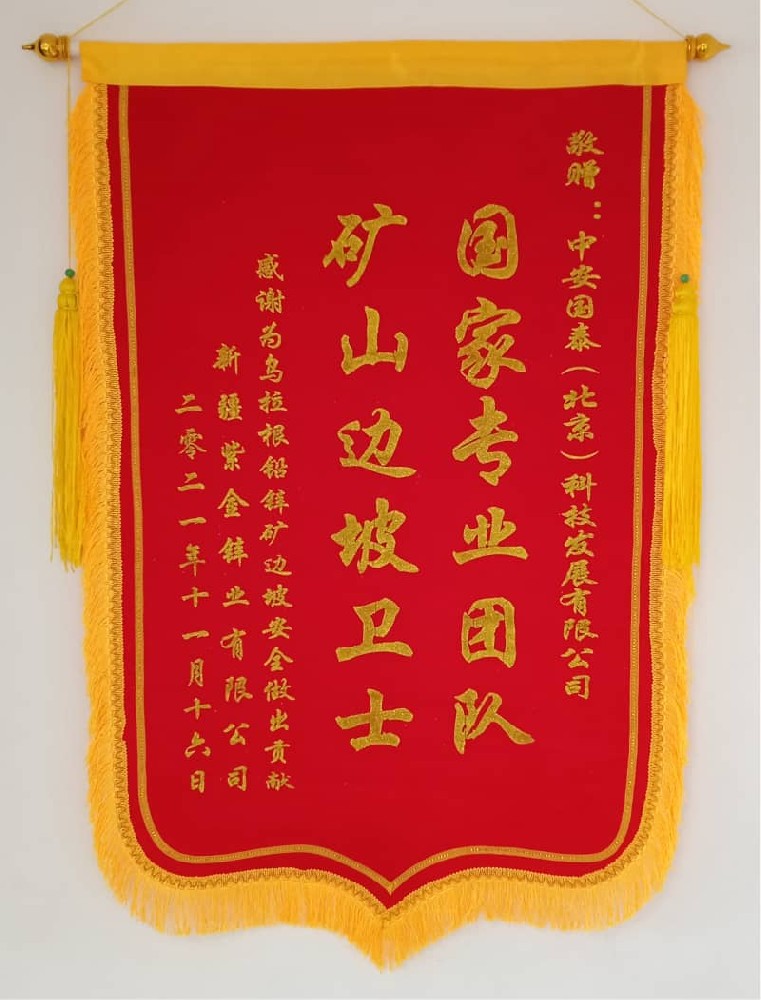 敬赠：中安国泰（北京）科技发展有限公司
国家专业团队
矿山边坡卫士
感谢为乌拉根铅锌矿边坡安全做出贡献
新疆紫金锌业有限公司
二零二一年十一月十六日